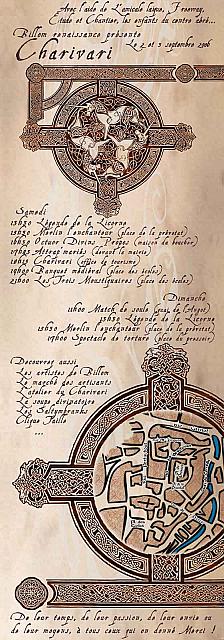 Avec l'aide de L'amicale laïque, Freeway,
Etude et Chantier, les enfants du centre aéré...
Billom renaissance présente
Le 2 et 3 septembre 2006
Charivari
Samedi
15h30 Légende de la Licorne
15h30 Merlin l'enchanteur (place de la prévôtat)
16h30 Octave Divins Propos (maison du boucher)
17h45 (devant la mairie)
18h15 Charivari (office de tourisme)
19h00 Banquet médiéval (place des écoles)
21h00 Les Trois Moustiquaires (place des écoles)
Dimanche
11h00 Match de soule
15h30 Légende de la Licorne
15h30 Merlin l'enchanteur (place de la prévôtat)
17h00 Spectacle de torture (place du pressoir)
Découvrez aussi
Les artistes de Billom
Le marché des artisans
L'atelier du Charivari
La soupe divinatoire
Les Saltymbranks
...
De leur temps, de leur passion, de leur envie ou
de leur moyens, à tous ceux qui en donné Merci !